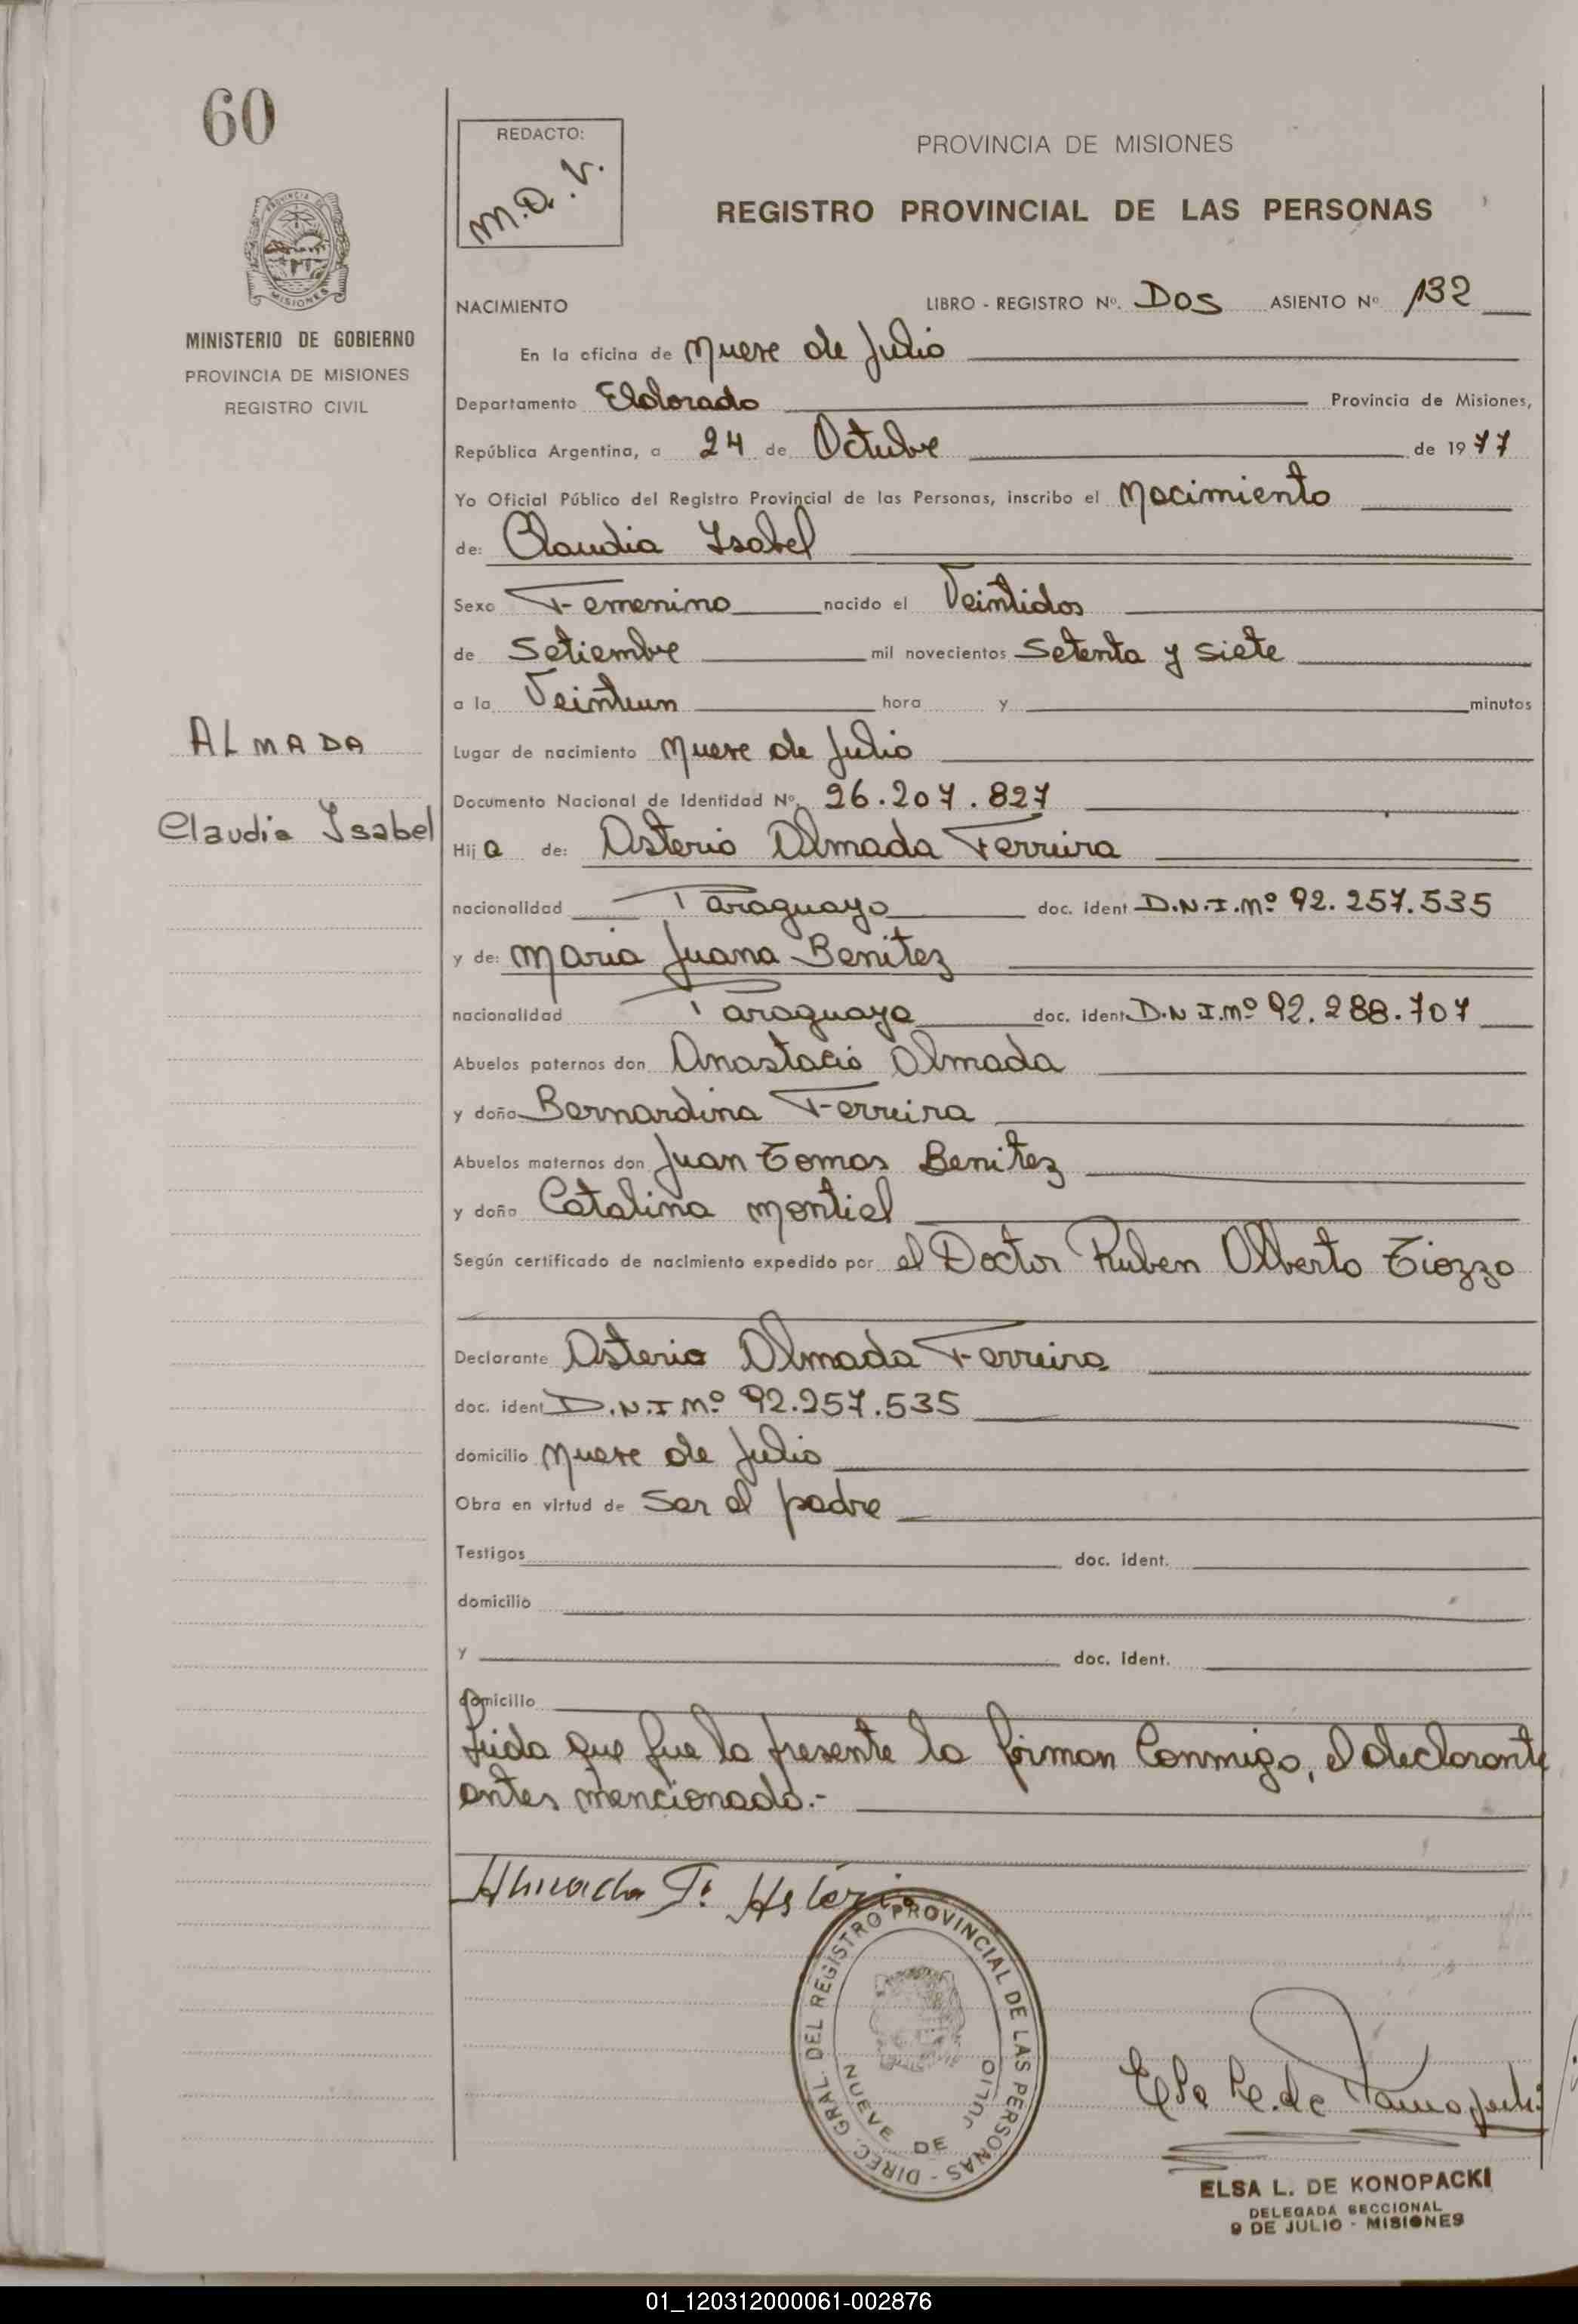 60
REDACTO:
M.D.V.
PROVINCIA DE MISIONES
REGISTRO PROVINCIAL DE LAS PERSONAS
PROVINCIA DE
MISIONES
MINISTERIO DE GOBIERNO
PROVINCIA DE MISIONES
REGISTRO CIVIL
NACIMIENTO LIBRO - REGISTRO Nº. DOS ASIENTO Nº 132
En la oficina de Nueve de Julio
Departamento Eldorado Provincia de Misiones,
República Argentina, a 24 de Octubre de 1977
Yo Oficial Público del Registro Provincial de las Personas, inscribo el Nacimiento
de: Claudia Isabel
Sexo Femenino nacido el Veintidos
de Setiembre mil novecientos Setenta y siete
a la Veintiun hora y minutos
ALMADA
Claudia Isabel
Lugar de nacimiento Nueve de Julio
Documento Nacional de Identidad Nº. 26.207.827
Hija de: Asterio Almada Ferreira
nacionalidad Paraguayo doc. ident. D.N.I.Nº 92.257.535
y de: Maria Juana Benitez
nacionalidad Paraguaya doc. ident. D.N.I.Nº 92.288.707
Abuelos paternos don Anastacio Almada
y doña Bernardina Ferreira
Abuelos maternos don Juan Tomas Benitez
y doña Catalina Montiel
Según certificado de nacimiento expedido por el Doctor Ruben Alberto Tiozzo
Declarante Asterio Almada Ferreira
doc. ident D.N.I Nº 92.257.535
domicilio Nueve de Julio
Obra en virtud de Ser el padre
Testigos doc. ident.
domicilio
y doc. ident.
domicilio
Leida que fue la presente la firman Conmigo, el declarante
antes mencionado.-
Almada F. Asterio
DIREC. GRAL. DEL REGISTRO PROVINCIAL DE LAS PERSONAS -
NUEVE DE JULIO
Elsa L. de Konopacki
ELSA L. DE KONOPACKI
DELEGADA SECCIONAL
9 DE JULIO - MISIONES
01_120312000061-002876